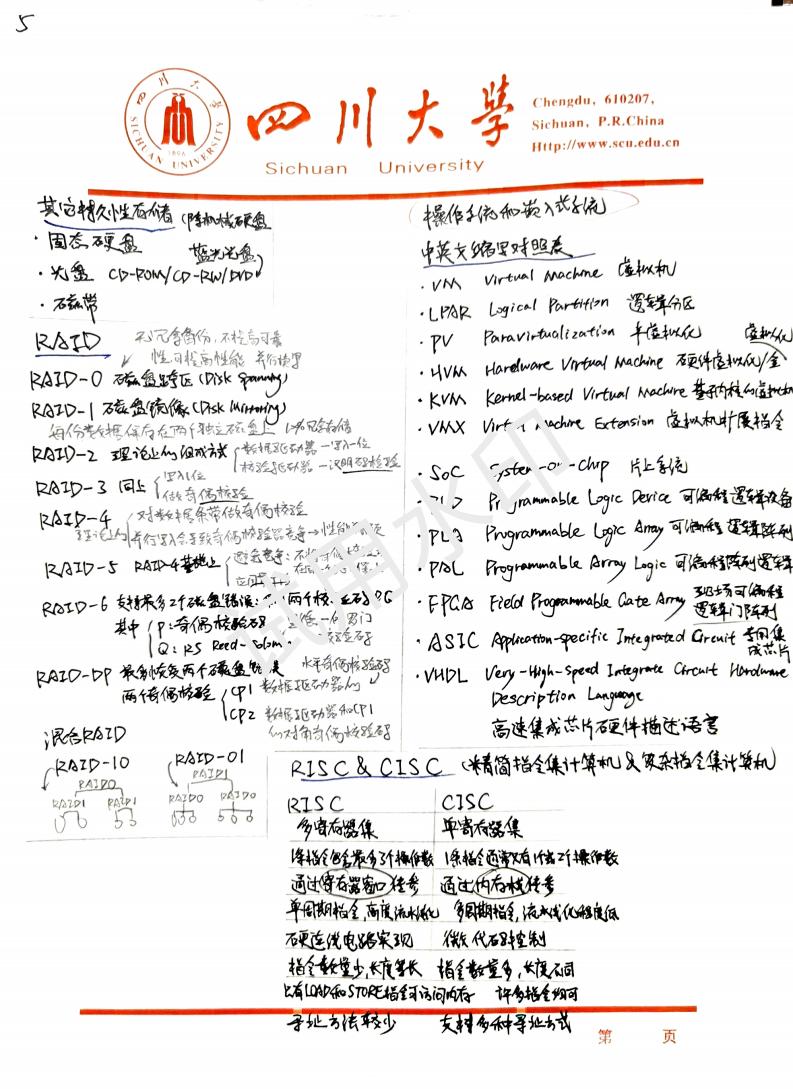 5
四川大学
SICHUAN UNIVERSITY
1896
四川大学
Sichuan University
Chengdu, 610207,
Sichuan, P.R.China
Http://www.scu.edu.cn
其它持久性存储者(除机械硬盘
· 固态硬盘
蓝光光盘
· 光盘 CD-ROM/CD-RW/DVD
· 磁带
RAID 无冗余备份,不提高可靠
性可提高性能 并行
RAID-0 磁盘跨区(Disk Spanning)
RAID-1 磁盘镜像(Disk Mirroring)
每份数据保存在两个独立磁盘上
RAID-2 理论上的组成方式 数据驱动器 一次写入一位
校验驱动器 - 汉明码校验
RAID-3 同上 写入1位
做奇偶校验
RAID-4 对数据条带做奇偶校验
理论上的 并行写入会导致奇偶校验器竞争→性能
RAID-5 RAID-4基础上 避免竞争:
RAID-6 支持最多2个磁盘错误: 两个校
其中 P:奇偶校验码
Q:RS Reed-Solom
RAID-DP 最多恢复两个磁盘 水平奇偶校验码
两个奇偶校验 CP1 数据驱动器的
CP2 数据驱动器和CP1
的对角奇偶校验码
混合RAID
RAID-10 RAID-01
RAID0 RAID1
RAID1 RAID1 RAID0 RAID0
操作系统和嵌入式系统
中英文缩写对照表
· VM Virtual Machine 虚拟机
· LPAR Logical Partition 逻辑分区
· PV Paravirtualization 半虚拟化 虚拟化
· HVM Hardware Virtual Machine 硬件虚拟化/全
· KVM Kernel-based Virtual Machine 基于内核的虚拟机
· VMX Virt Machine Extension 虚拟机扩展指令
· SoC System-on-Chip 片上系统
Programmable Logic Device 可编程逻辑设备
· PLA Programmable Logic Array 可编程逻辑阵列
· PAL Programmable Array Logic 可编程阵列逻辑
· FPGA Field Programmable Gate Array 现场可编程
逻辑门阵列
· ASIC Application-specific Integrated Circuit 专用集
成芯片
· VHDL Very-High-Speed Integrate Circuit Hardware
Description Language
高速集成芯片硬件描述语言
RISC & CISC (精简指令集计算机 & 复杂指令集计算机)
RISC CISC
多寄存器集 单寄存器集
1条指令包含最多3个操作数 1条指令通常只有1个或2个操作数
通过寄存器窗口传参 通过内存栈传参
单周期指令,高度流水化 多周期指令,流水线化程度低
硬连线电路实现 微代码控制
指令数量少,长度等长 指令数量多,长度不同
只有LOAD和STORE指令可访问内存 许多指令均可
寻址方法较少 支持多种寻址方式
第 页
试用水印